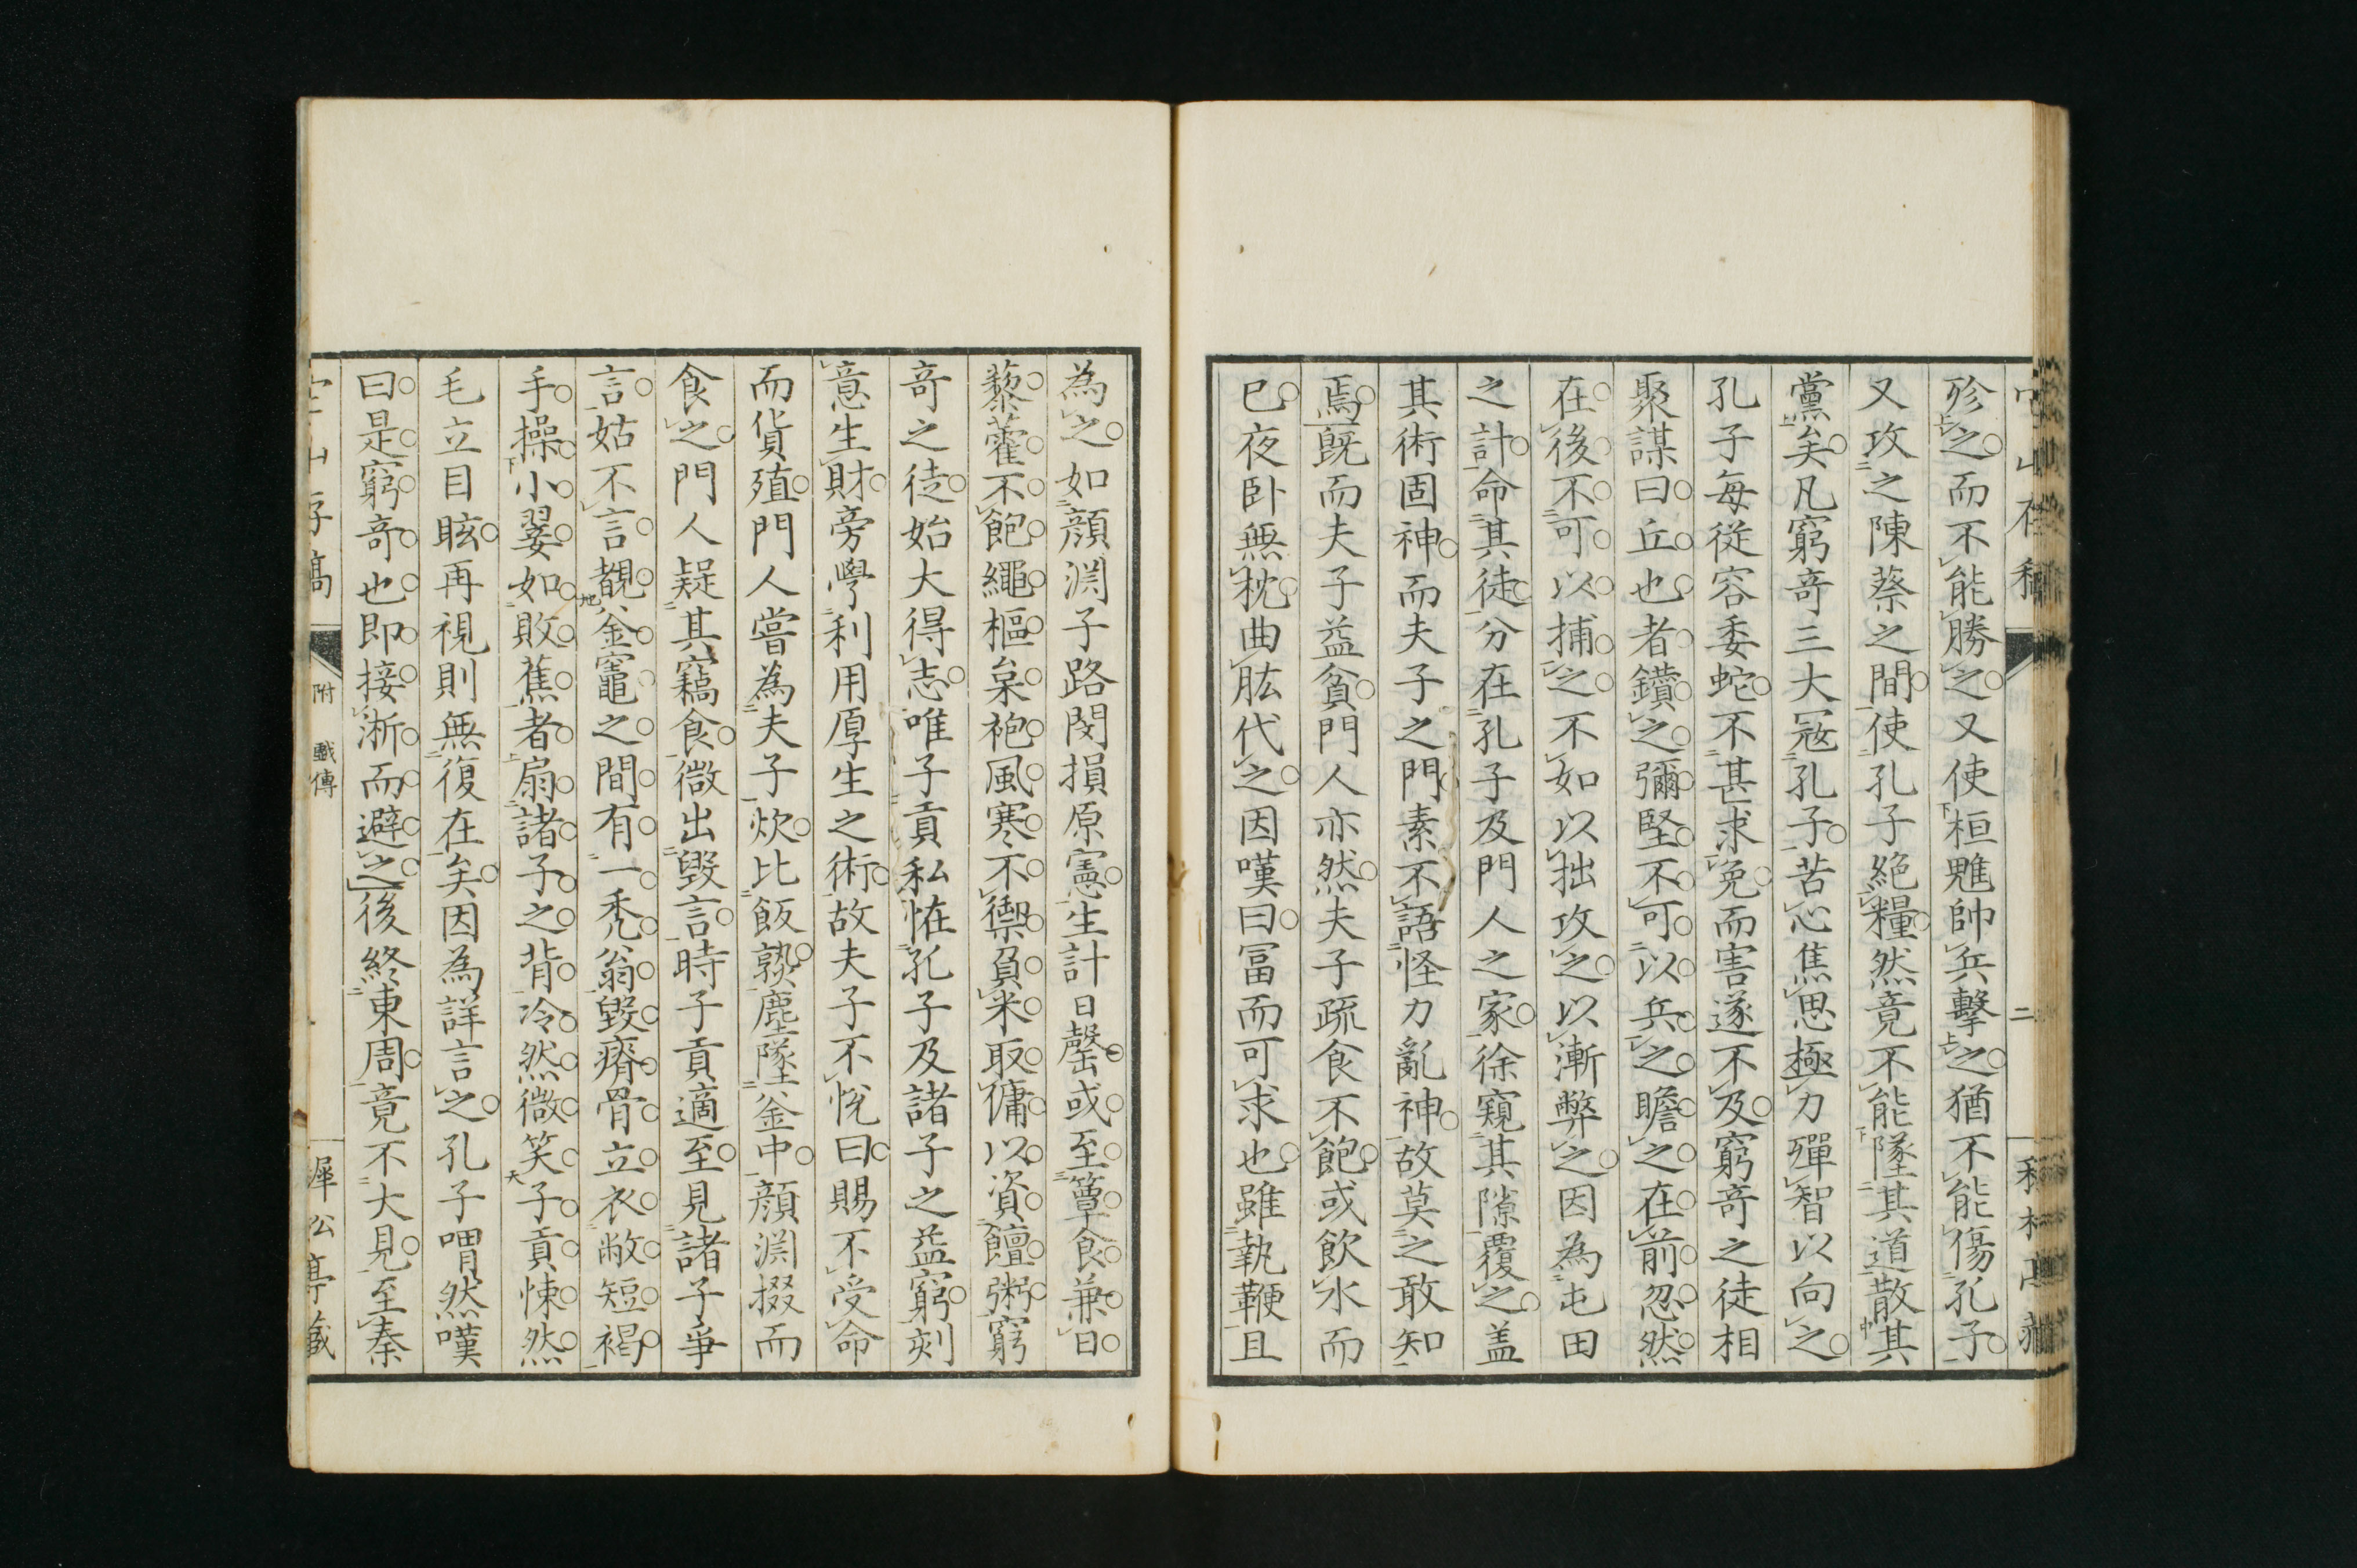 殄之而不能勝之又使桓魋帥兵擊之猶不能傷孔子
又攻之陳蔡之間使孔子絕糧然竟不能墜其道散其
黨矣凡窮奇三大寇孔子苦心焦思極力殫智以向之
孔子每從容委蛇不甚求免而害遂不及窮奇之徒相
聚謀曰丘也者鑽之彌堅不可以兵之瞻之在前忽然
在後不可以捕之不如以拙攻之以漸弊之因為屯田
之計命其徒分在孔子及門人之家徐窺其隙覆之盖
其術固神而夫子之門素不語怪力亂神故莫之敢知
焉既而夫子益貧門人亦然夫子疏食不飽或飲水而
已夜卧無枕曲肱代之因嘆曰富而可求也雖執鞭且
為之如顏淵子路閔損原憲生計日罄或至簞食兼日
藜藿不飽繩樞枲袍風寒不禦負米取傭以資饘粥窮
奇之徒始大得志唯子貢私恠孔子及諸子之益窮刻
意生財旁學利用厚生之術故夫子不悅曰賜不受命
而貨殖門人嘗為夫子炊比飯熟塵墜釜中顏淵掇而
食之門人疑其竊食微出毀言時子貢適至見諸子爭
言姑不言覩釜竈之間有一禿翁毀瘠骨立衣敝短褐
手操小翣如敗蕉者扇諸子之背冷然微笑子貢悚然
毛立目眩再視則無復在矣因為詳言之孔子喟然嘆
曰是窮奇也即接淅而避之後終東周竟不大見至秦
附 戲傳
犀公亭藏